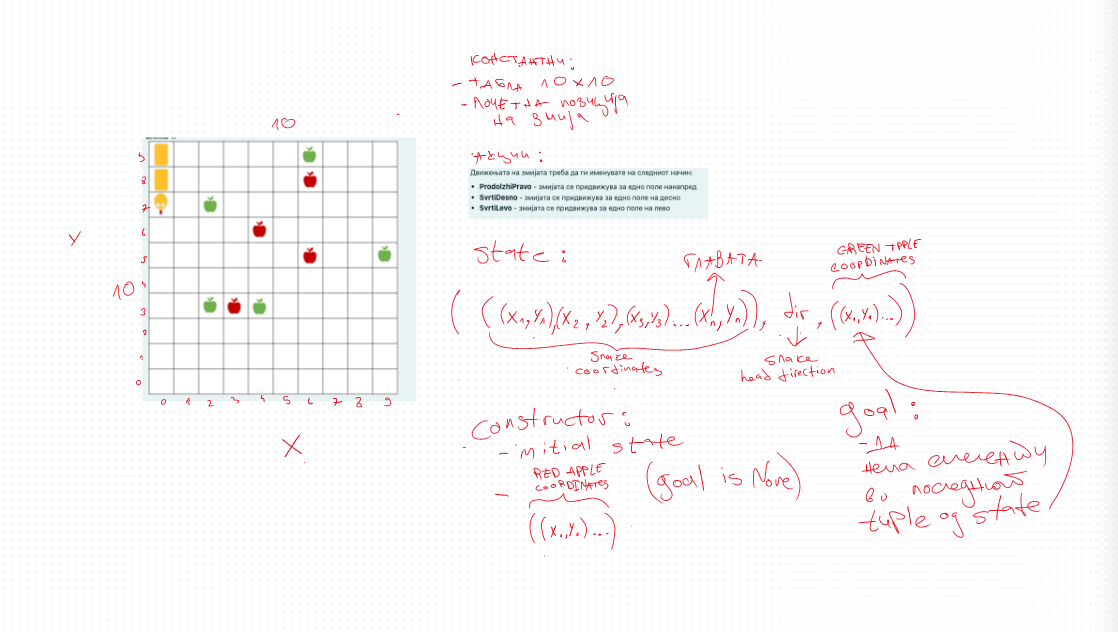 КОНСТАНТНИ:
- ТАБЛА 10x10
- ПОЧЕТНА позиција
на змија
10
АКЦИИ:
Движењата на змијата треба да ги именувате на следниот начин:
• ProdolzhiPravo - змијата се придвижува за едно поле нанапред
• SvrtiDesno - змијата се придвижува за едно поле на десно
• SvrtiLevo - змијата се придвижува за едно поле на лево
9
8
7
6
5
4
3
2
1
0
Y
10
0 1 2 3 4 5 6 7 8 9
X
state:
ГЛАВАТА
GREEN APPLE
COORDINATES
( ( (x₁,y₁),(x₂,y₂),(x₃,y₃)...(xₙ,yₙ)), dir, ((x₁,y₁)...))
snake
coordinates
snake
head direction
constructor:
- initial state
RED APPLE
COORDINATES
(goal is None)
-
((x₁,y₁)...)
goal:
- ДА
нема елементи
во последниот
tuple од state